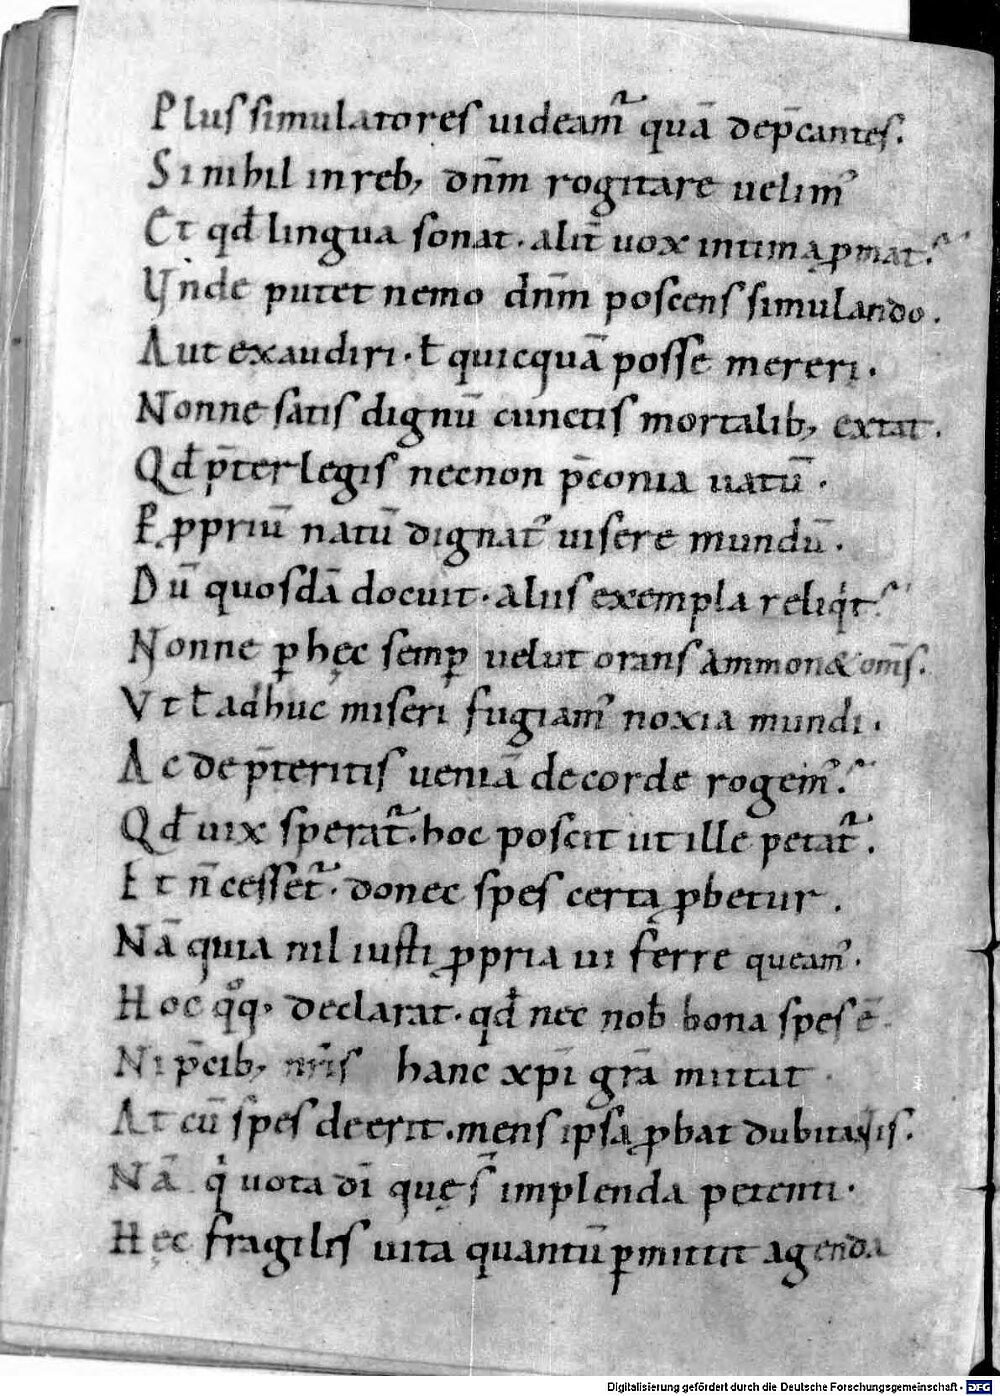 Plus simulatores uideam᷑ quā dep̄cantes.
Si nihil in reb; dn̄m rogitare uelim᷒
Et qđ lingua sonat. alit̄ uox intima ꝓmat.
Vnde putet nemo dn̄m poscens simulando.
Aut exaudiri. ł quicquā posse mereri.
Nonne satis dignū cunctis mortalib; extat.
Qđ p̄ter legis necnon p̄conia uatū.
E ꝓpriū natū dignat᷑ uisere mundū.
Dū quosdā docuit. aliis exempla reliqͥt.
Nonne ꝑ hęc semꝑ uelut orans ammon& om̄s.
Vt ł adhuc miseri fugiam᷒ noxia mundi.
Ac de p̄teritis ueniā de corde rogem᷒.
Qđ uix sperat᷑. hoc poscit ut ille petat᷑.
Et n̄ cesset᷑. donec spes certa ꝓbetur.
Nā quia nil iusti ꝓpria ui ferre queam᷒.
Hoc qͦq; declarat. qđ nec nob̄ bona spes ē.
Ni p̄cib; nr̄is hanc xp̄i gr̄a mittat
At cū spes deerit. mens ipsa ꝓbat dubitantis.
Nā qͥ uota dī quęs᷑ implenda petenti.
Hęc fragilis uita quantū ꝑmittit agenda
Digitalisierung gefördert durch die Deutsche Forschungsgemeinschaft - DFG